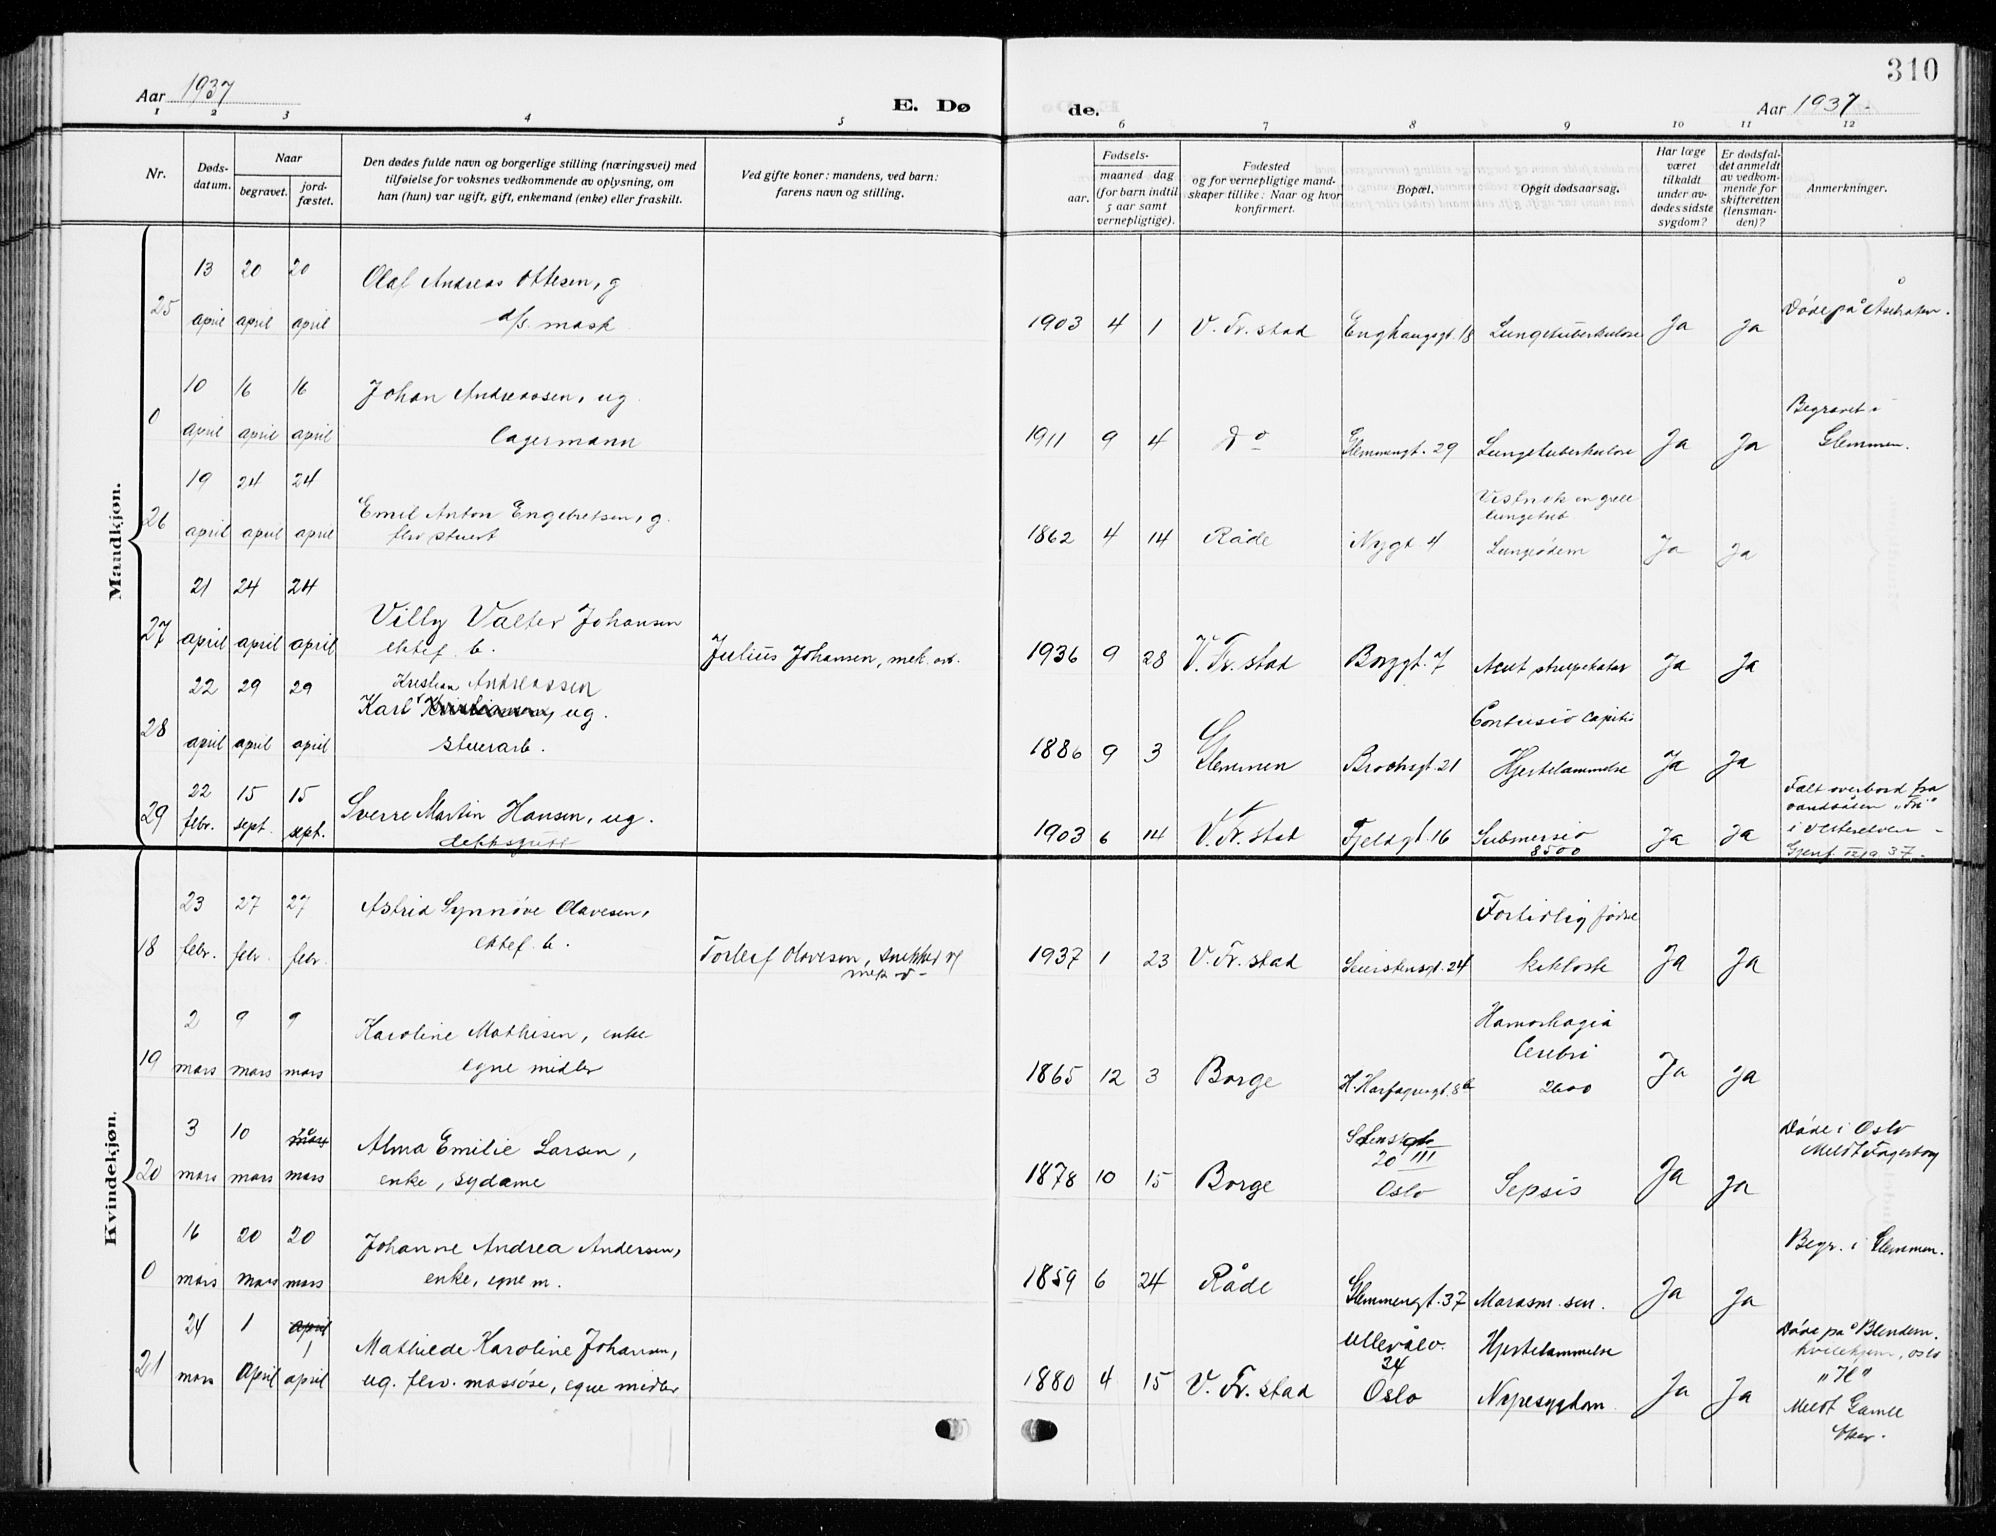 310
Aar 1937
E. Dø
de.
Aar 1937
1 2 3 4 5 6 7 8 9 10 11 12
Nr.
Døds-
datum.
Naar
begravet.
jord-
fæstet.
Den dødes fulde navn og borgerlige stilling (næringsvei) med
tilføielse for voksnes vedkommende av oplysning, om
han (hun) var ugift, gift, enkemand (enke) eller fraskilt.
Ved gifte koner: mandens, ved barn:
farens navn og stilling.
Fødsels-
aar.
maaned dag
(for barn indtil
5 aar samt
vernepligtige).
Fødested
og for vernepligtige mand-
skaper tillike: Naar og hvor
konfirmert.
Bopæl.
Opgit dødsaarsag.
Har læge
været
tilkaldt
under av-
dødes sidste
sygdom?
Er dødsfal-
det anmeldt
av vedkom-
mende for
skifteretten
(lensman-
den)?
Anmerkninger.
Mandkjøn.
13 20 20 Olaf Andreas Ottesen, g
25 april april april
1903 4 1 V. Fr.stad Enghaugsgt. 18 Lungetuberkulose Ja Ja Døde på
10 16 16 Johan Andreassen, ug.
0 april april april Lagermann
1911 9 4 do Glemmengt. 29 Lungetuberkulose Ja Ja
Begravet i
Glemmen.
19 24 24
26 april april april Emil Anton Engebretsen, g.
flv stuert
1862 4 14 Råde Nygt. 4 Lungeødem Ja Ja
21 24 24
27 april april april Villy Valter Johansen
ektef. b.
Julius Johansen, mek. arb.
1936 9 28 V. Fr.stad Borggt. 7 Acut strupekatar Ja Ja
22 29 29 Kristian Andreassen
28 april april april Karl , ug.
1886 9 3 Glemmen Brochsgt. 21 Contusio capitis
Hjertelammelse Ja Ja
22 15 15
29 febr. sept. sept. Sverre Martin Hansen, ug.
dekksgutt
1903 6 14 V. Fr.stad Fjeldgt. 16 Submersio
8500
Ja Ja
Falt overbord fra
i Vesterelven -
Kvindekjøn.
23 27 27 Astrid Synnøve Olavesen,
18 febr. febr. febr. ektef. b.
Torleif Olavesen, snekker
1937 1 23 V. Fr.stad Seierstensgt. 24 Fortidlig fødsel
Ja Ja
2 9 9 Karoline Mathisen, enke
19 mars mars mars egne midler
1865 12 3 Borge H. Harfagersgt. 8b Hamorhagia
Cerebri
2600
Ja Ja
3 10 Alma Emilie Larsen,
20 mars mars mars enke, sydame
1878 10 15 Borge 20 III
Oslo Sepsis Ja Ja
Døde i Oslo
Meldt Fagerborg
16 20 20 Johanne Andrea Andersen,
0 mars mars mars enke, egne m.
1859 6 24 Råde Glemmengt. 37 Marasm. sen. Ja Ja
Begr. i Glemmen.
24 1 april 1
21 mars April april Mathilde Karoline Johansen,
ug. flv. massøse, egne midler
1880 4 15 V. Fr.stad Ullevålv.
24
Oslo Hjertelammelse
Nyresygdom Ja Ja
Døde på Blindern
hvilehjem, Oslo
Meldt Gamle
Aker.